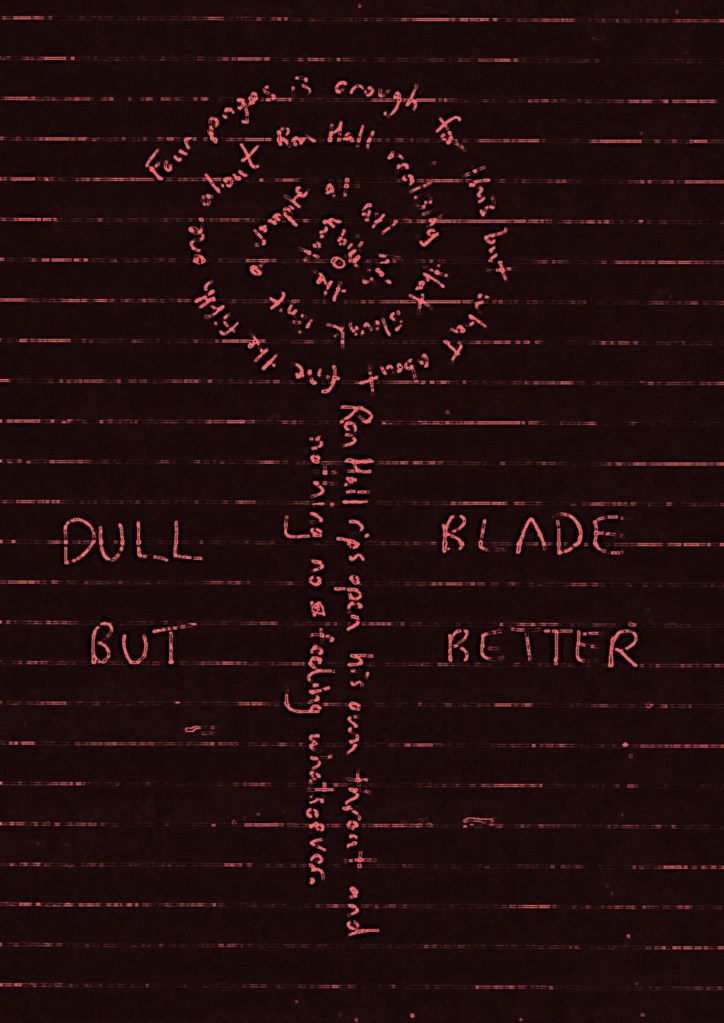 Four pages is enough for this but what about five the fifth one about Ron Hall realising that at all its the
Ron Hall rips open his own throat and
nothing no feeling whatsoever.
DULL BLADE
BUT BETTER